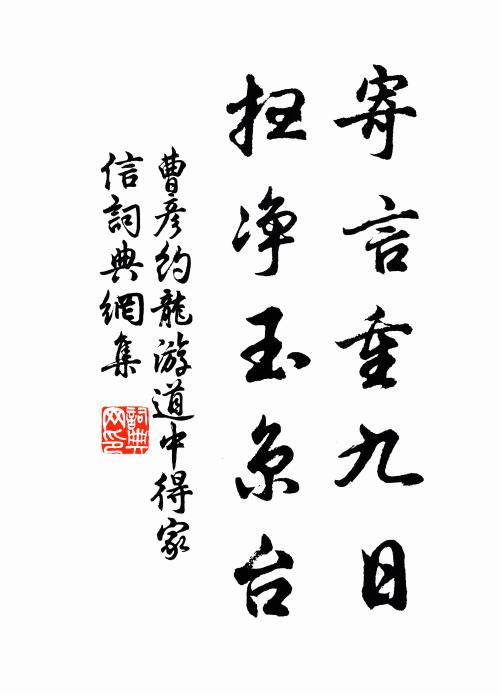 寄言重九日
扫净玉京台
曹彦約龍游道中得家
信詞典網集
詞典
网印